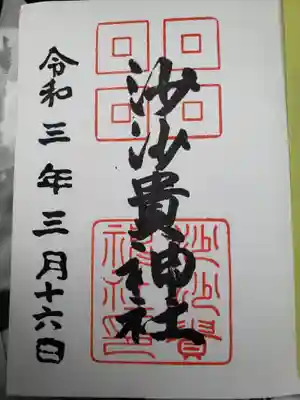 沙沙貴神社
令和三年三月十六日
沙沙貴神社印